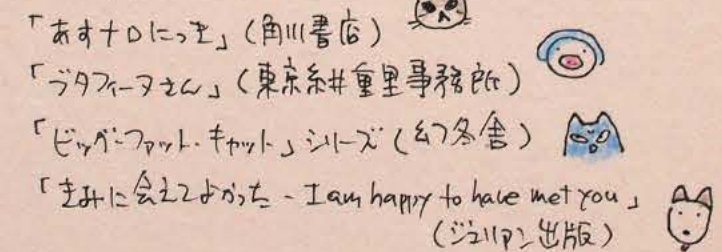 「あすナロにっき」(角川書店)
「ブタフィーヌさん」(東京糸井重里事務所)
「ビッグ・ファット・キャット」シリーズ(幻冬舎)
「きみに会えてよかった - I am happy to have met you」
(ジュリアン出版)